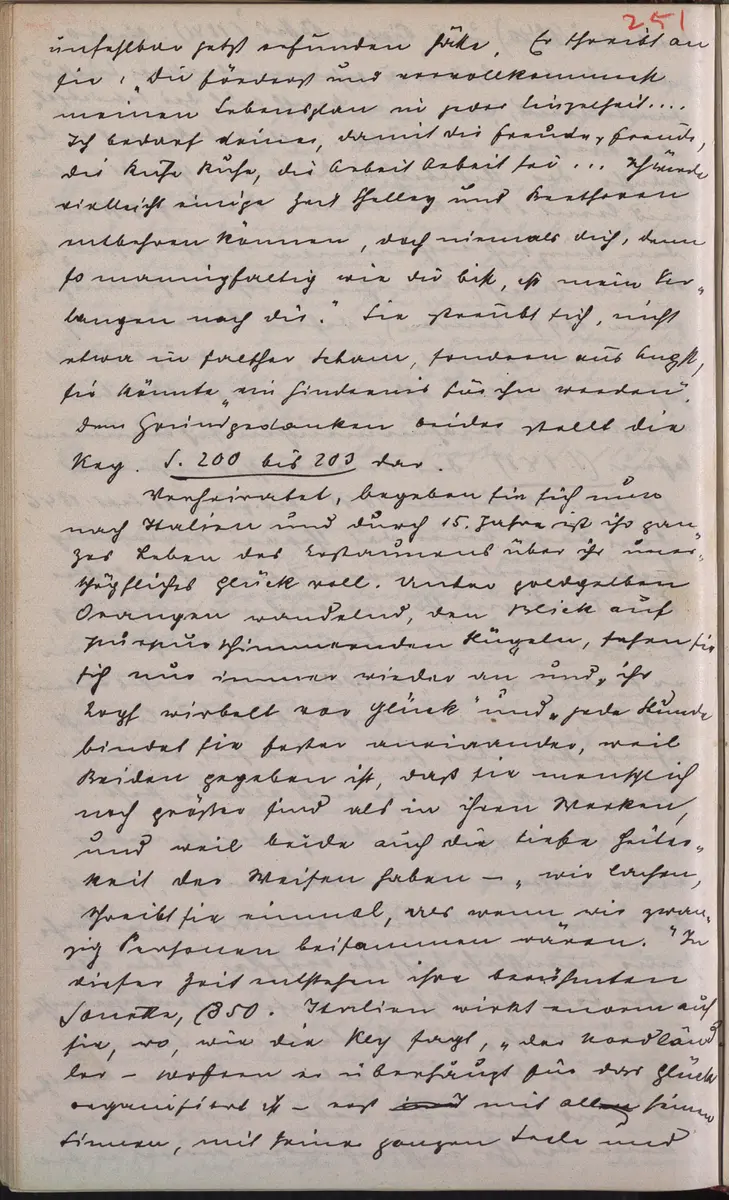 251
unfehlbar jetzt erfunden hätte. Er schreibt an
sie: „Du förderst und vervollkommnest
meinen Lebensplan in jeder Einzelheit....
Ich bedarf deiner, damit die Freude Freude,
die Ruhe Ruhe, die Arbeit Arbeit sei ... Ich würde
vielleicht einige Zeit Shelley und Beethoven
entbehren können, doch niemals dich, denn
so mannigfaltig wie du bist, ist mein Ver-
langen nach dir." Sie sträubt sich, nicht
etwa in falscher Scham, sondern aus Angst,
sie könnte „ein Hindernis für ihn werden".
Den Grundgedanken beider stellt die
Key. S. 200 bis 203 dar.
Verheiratet, begeben sie sich nun
nach Italien und durch 15. Jahre ist ihr gan-
zes Leben des Erstaunens über ihr uner-
schöpfliches Glück voll. Unter goldgelben
Orangen wandelnd, den Blick auf
purpurschimmernden Hügeln, sehen sie
sich nur immer wieder an und „ihr
Kopf wirbelt vor Glück" und „jede Stunde
bindet sie fester aneinander, weil
Beiden gegeben ist, daß sie menschlich
noch größer sind als in ihren Werken,
und weil beide auch die tiefe Heiter-
keit der Weisen haben – „wir lachen,
schreibt sie einmal, als wenn wir zwan-
zig Personen beisammen wären." In
dieser Zeit entstehen ihre berühmten
Sonette, 1850. Italien wirkt enorm auf
sie, wo, wie die Key sagt, „der Nordlän-
der – wofern er überhaupt für das Glück
organisiert ist – erst mit allen seinen
Sinnen, mit seiner ganzen Seele und